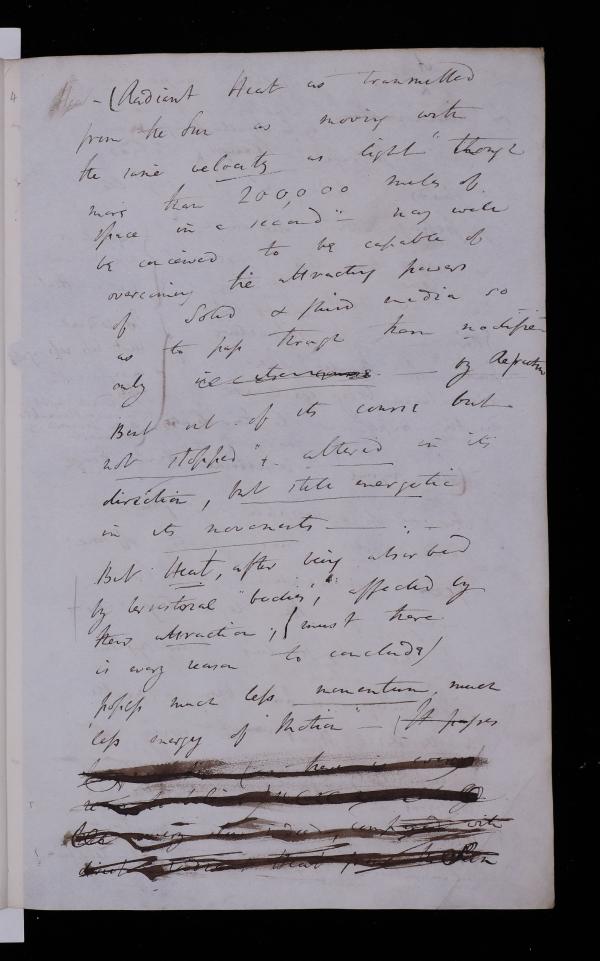 4
- (Radiant Heat as transmitted
from the Sun as moving with
the same velocity as light "though
more than 200,000 miles of
space in a second" - may well
be conceived to be capable of
overcoming the attracting powers
of Solid & fluid media so
as to pass through them modified
only — by Refraction
Bent out of its course but
not stopped" + altered in its
direction, but still energetic
in its movements —
But Heat, after being absorbed
by terrestrial "bodies", affected by
their attraction, (must there
is every reason to conclude)
possess much less momentum, much
less energy of "Motion" - (It passes
every
compared with
Heat